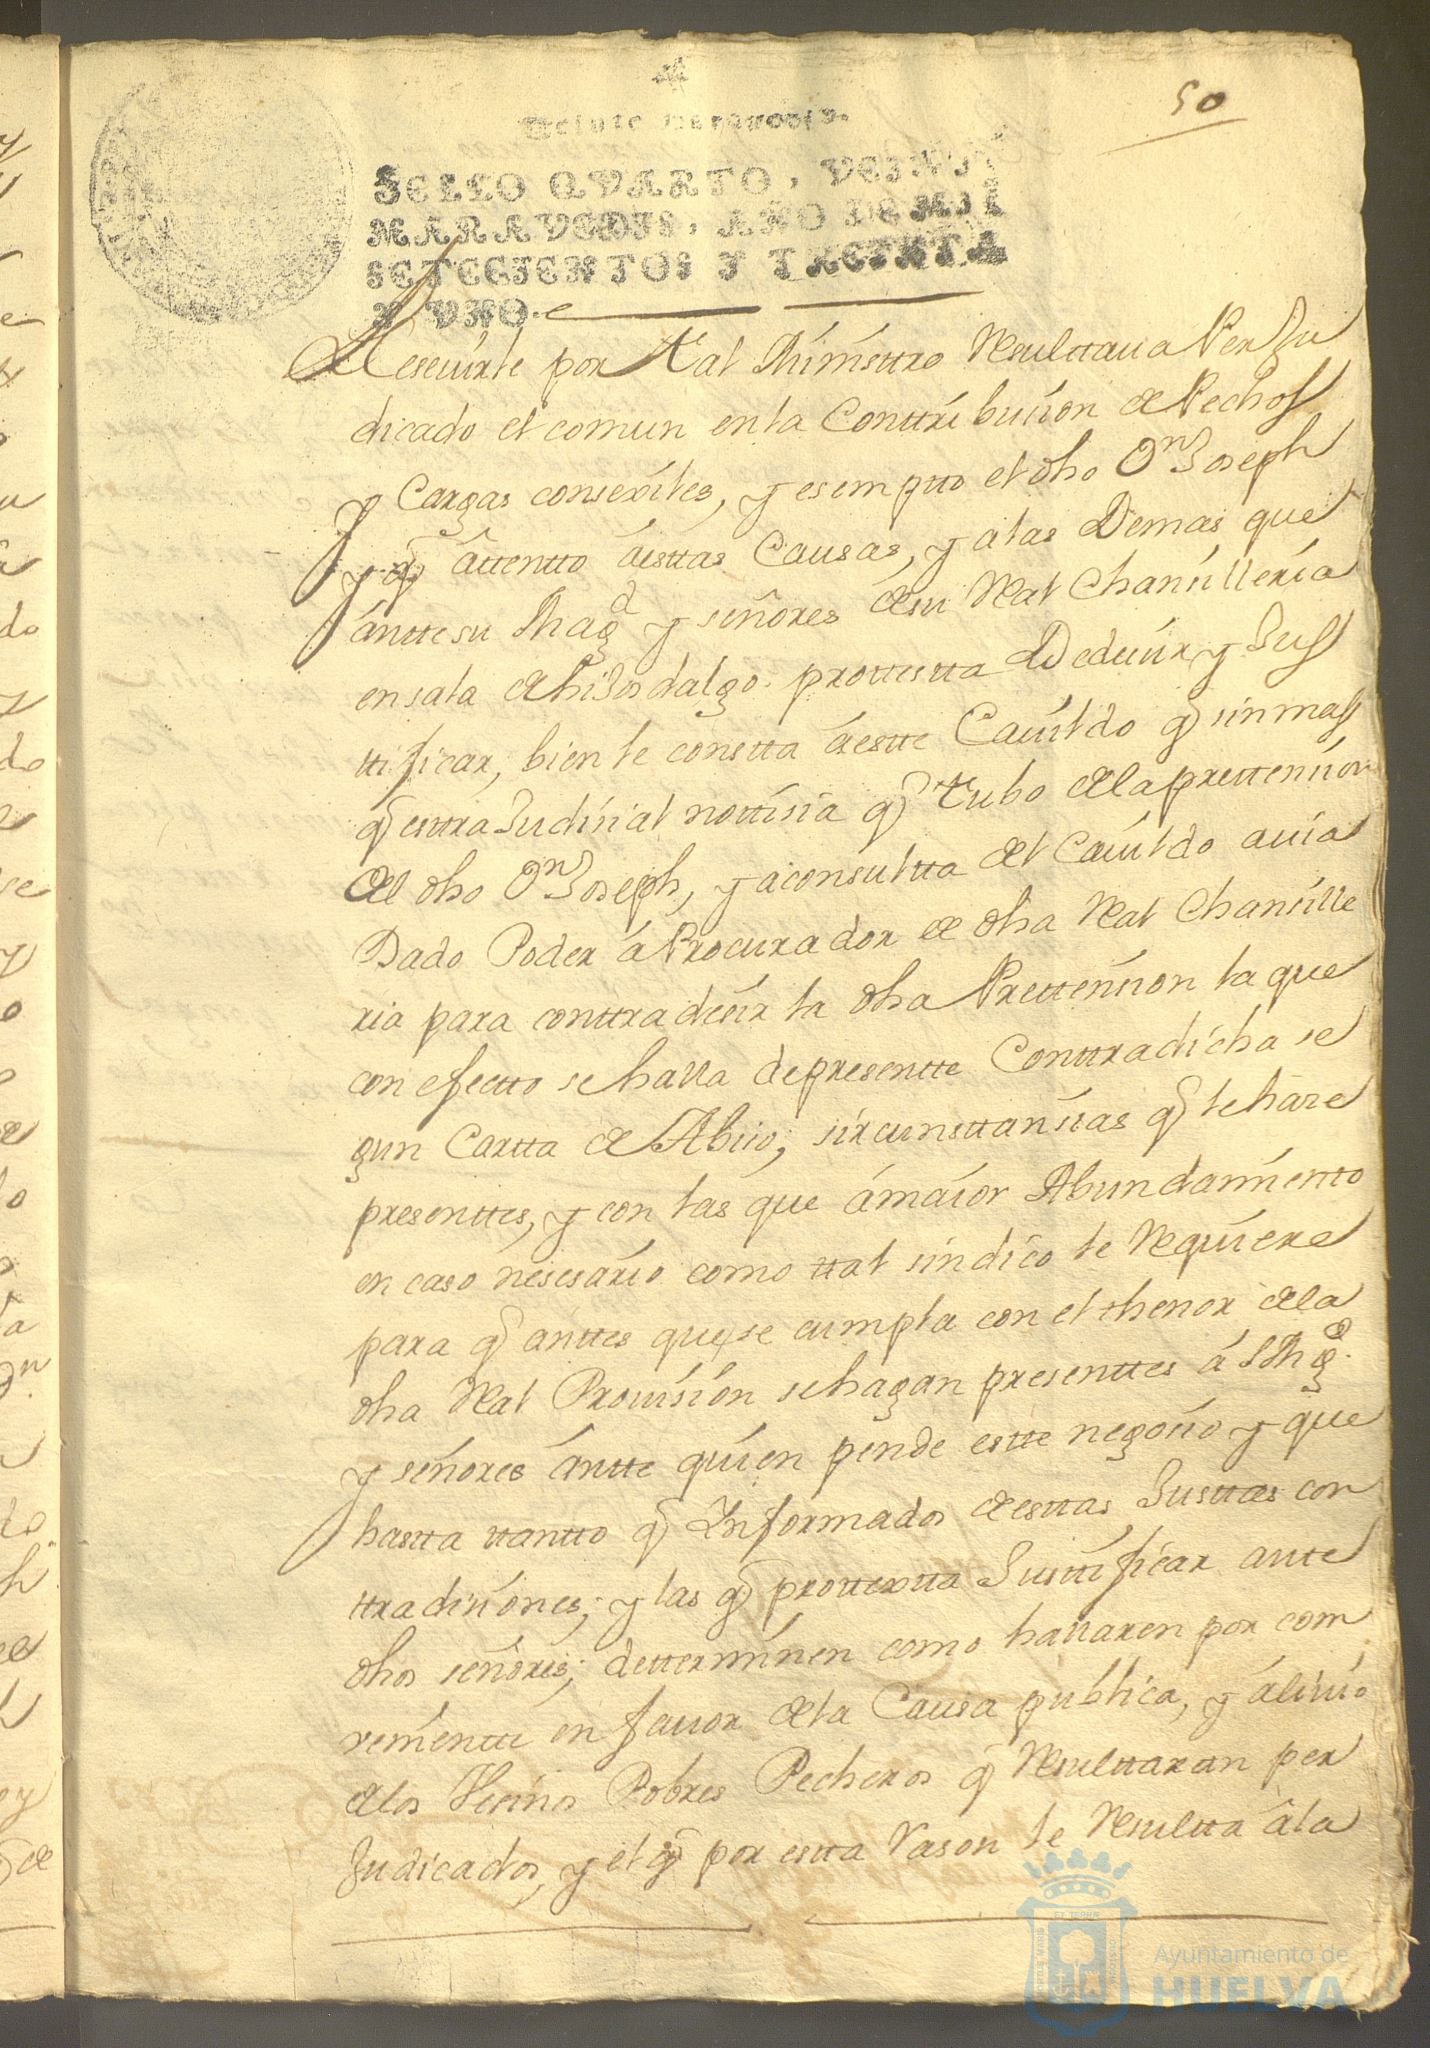 50
Veinte maravedis.
SELLO QVARTO, VEINTE
MARAVEDIS, AÑO DE MIL
SETECIENTOS Y TREINTA
Y VNO.
Reseuirle por Real Ministtro Resulttaua Perju
dicado el comun en la Conttribusion de Pechos
y Cargas consexiles, y esempto el dho Dn Joseph
y q attentto áesttas Causas, y a las Demas que
ántte su Magd y señores de su Real Chansilleria
en sala de hijosdalgo. prottestta Dedecir y Jus
ttificar, bien le constta áestte Cauildo q sin mas
q esttraJudisial nottisia q Tubo de la prettension
del dho Dn Joseph, y a consultta del Cauildo auia
Dado Poder á Procurador de dha Real Chansille
ria para conttradesir la dha Prettension la que
con efectto se halla de presentte Conttradicha se
gun Cartta de Abiso; sircunsttansias q le hase
presenttes, y con las que ámaior Abundamientto
en caso nesesario como ttal sindico le Requiere
para q ánttes que se cumpla con el thenor de la
dha Real Prouision se hagan presenttes á S Mgd.
y señores ántte quien pende estte negosio y que
hastta ttantto q Informados de esttas Justtas con
ttradisiones; y las q prottextta Justtificar antte
dhos señores; detterminen como hallaren por com
benientte en fauor de la Causa publica, y áliuio
de los Vesinos Pobres Pecheros q Resulttaran per
Judicados, y el q por estta Rason le Resultta á la
Ayuntamiento de
HUELVA